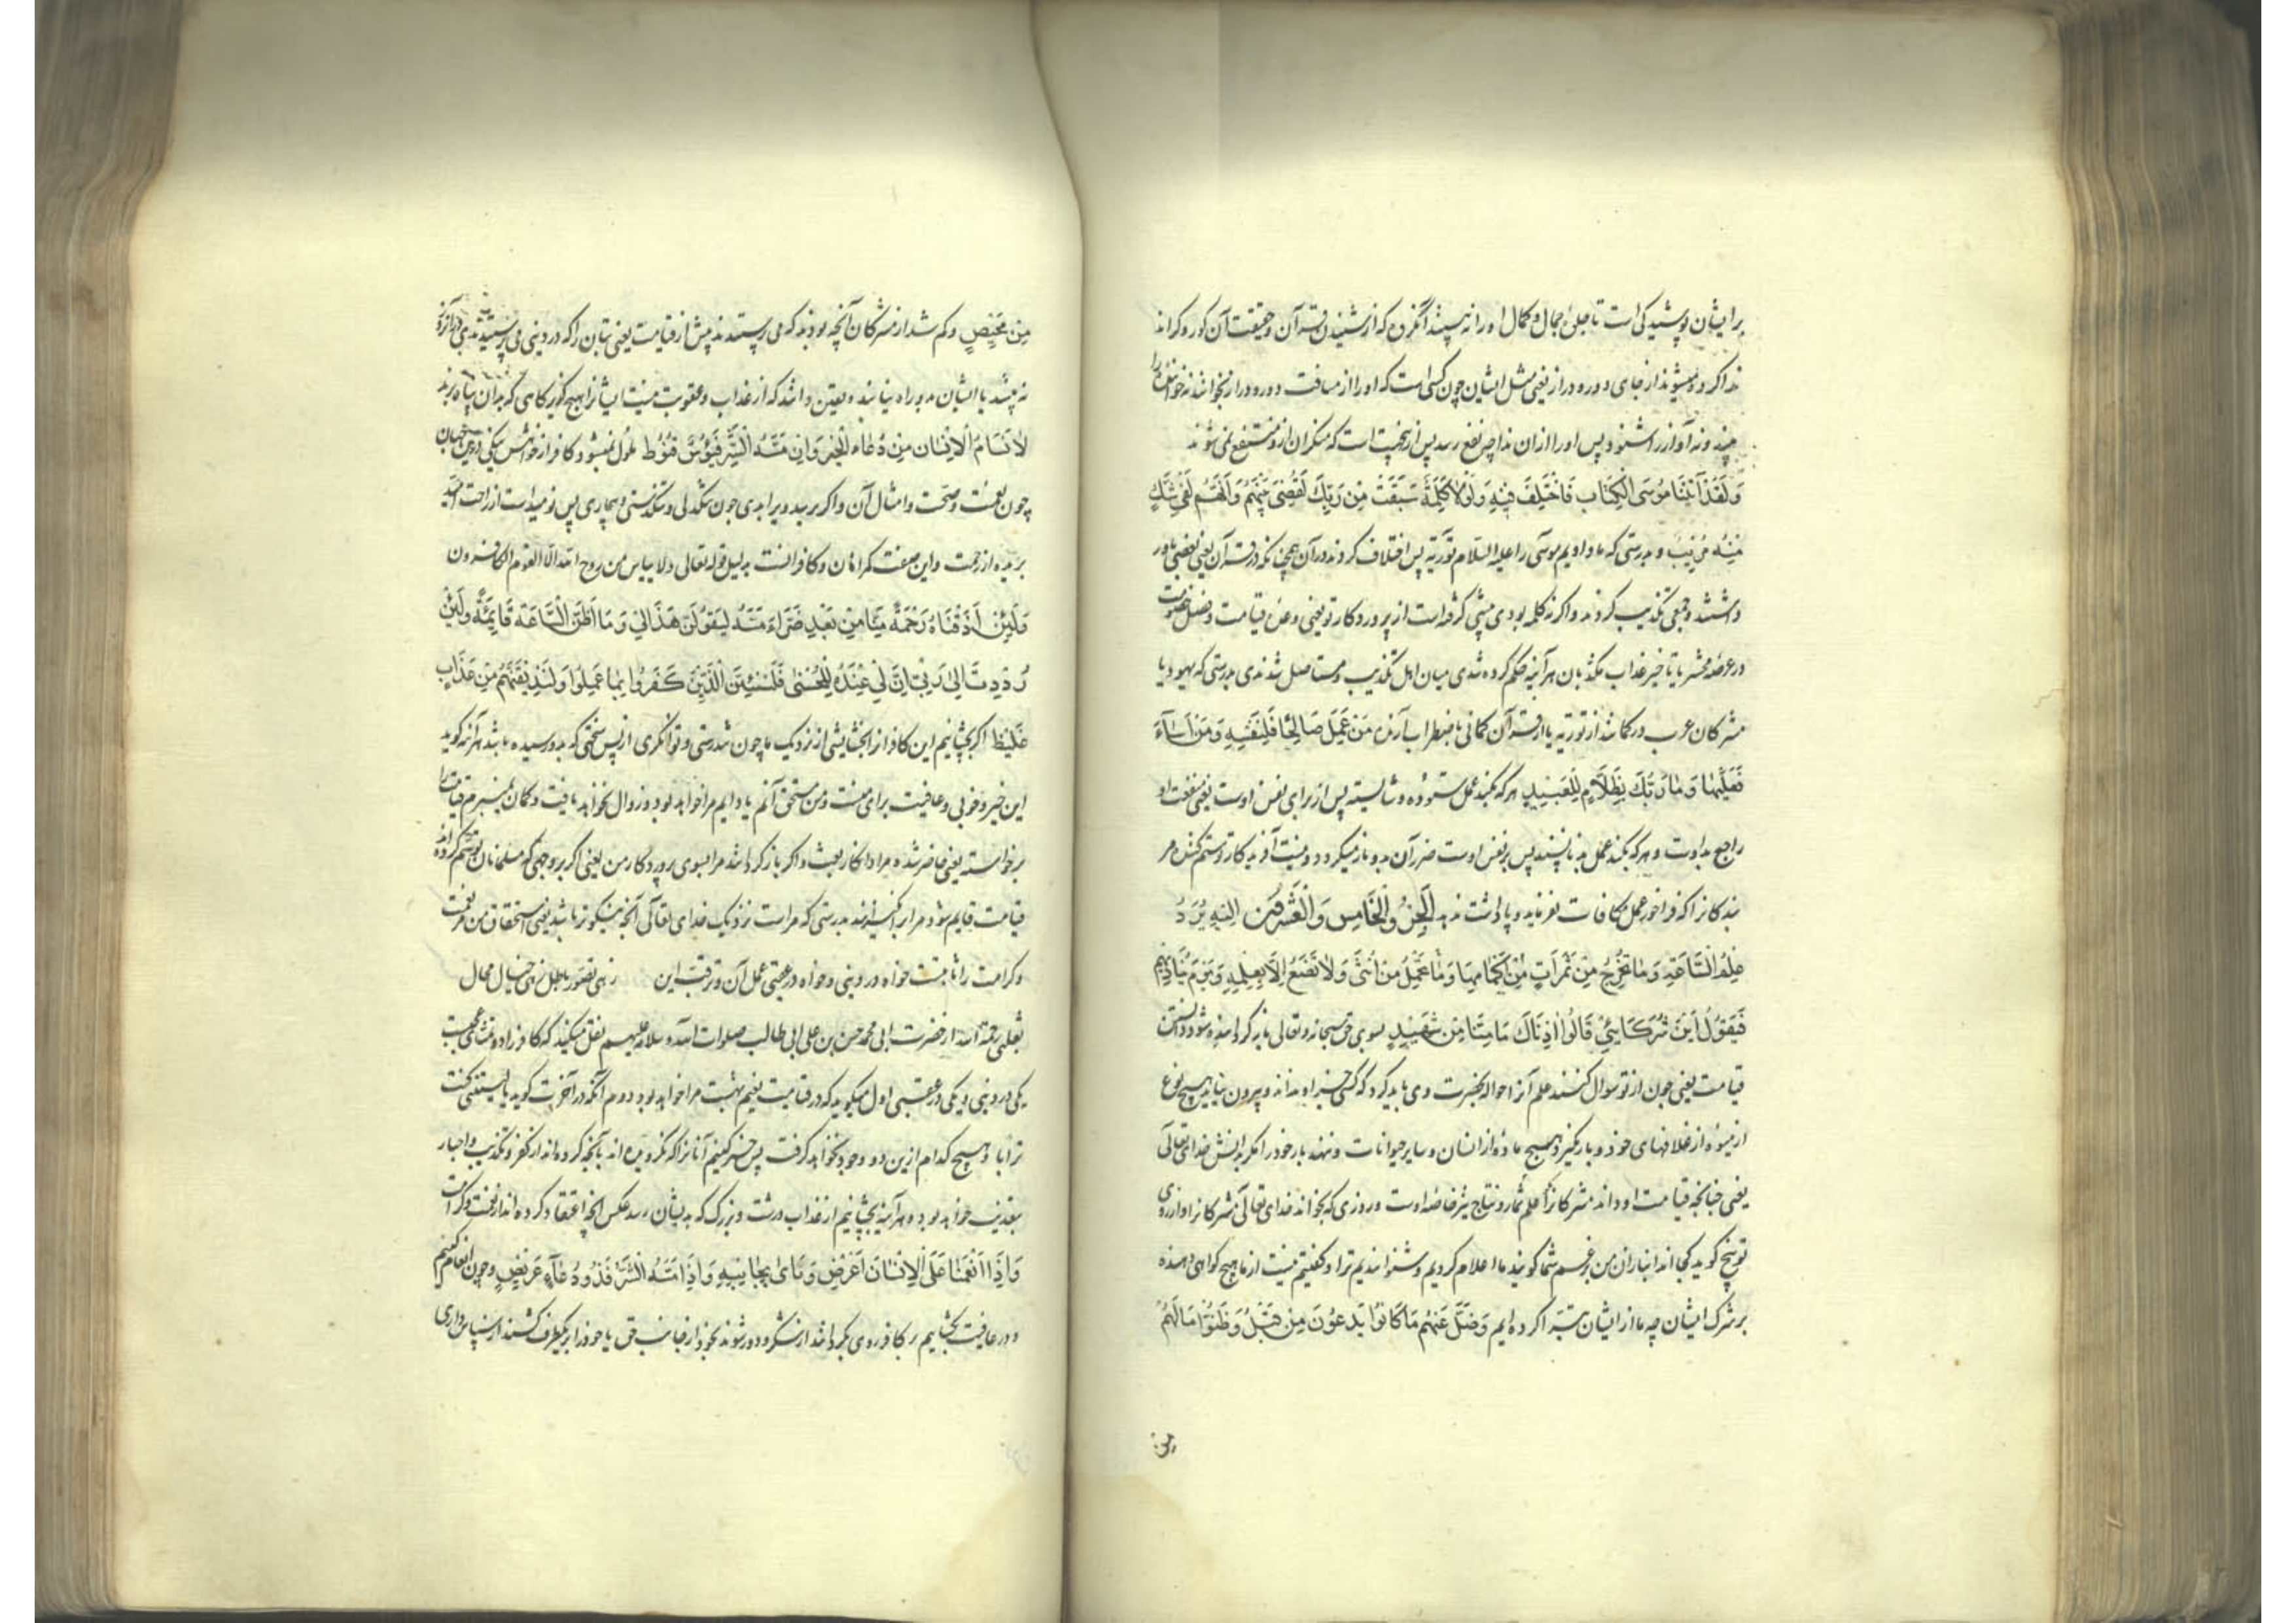 برایشان پوشیدگی است تا جلیه جمال و کمال او را نه بینند آنکروه که از شنیدن قرآن و حقیقت آن کور و کراند
ندا کرده میشوند از جای دور و دراز یعنی مثل ایشان چون کسی است که او را از مسافت دور و دراز بخوانند نه خواننده را
بیند و نه آواز را شنود پس او را ازان ندا چه نفع رسد پس ازینجهت است که منکران ازو منتفع نمی شوند
وَلَقَدْ آتَیْنَا مُوسَی الْکِتَابَ فَاخْتُلِفَ فِیهِ وَلَوْلَا کَلِمَةٌ سَبَقَتْ مِنْ رَبِّکَ لَقُضِیَ بَیْنَهُمْ وَاِنَّهُمْ لَفِی شَکٍّ
مِنْهُ مُرِیبٍ و بدرستی که ما دادیم موسی را علیه السلام توریة پس اختلاف کردند در آن همچنانکه در قرآن یعنی بعضی باور
داشتند و جمعی تکذیب کردند و اگر نه کلمه بودی پیشی گرفته است از پروردگار تو یعنی وعده قیامت و فصل خصومت
در عرصه محشر یا تاخیر عذاب مکذبان هر آینه حکم کرده شدی میان اهل تکذیب و مستاصل شدندی بدرستی که یهود یا
مشرکان عرب در گمانند از توریة یا از قرآن گمانی باضطراب آرنده مَنْ عَمِلَ صَالِحًا فَلِنَفْسِهِ وَمَنْ اَسَآءَ
فَعَلَیْهَا وَمَا رَبُّکَ بِظَلَّامٍ لِلْعَبِیدِ هر که بکند عمل ستوده و شایسته پس از برای نفس اوست یعنی منفعت او
راجع بداوت و هر که بکند عمل بد ناپسند پس بر نفس اوست ضرر آن بدو باز میگردد و نیست آفریدکار تو ستم کننده مر
بندکانرا که فراخور عمل مکافات نفرماید و پاداشت ندهد اَلْجُزْوُ الْخَامِسُ وَالْعِشْرُونَ اِلَیْهِ یُرَدُّ
عِلْمُ السَّاعَةِ وَمَا تَخْرُجُ مِنْ ثَمَرَاتٍ مِنْ اَکْمَامِهَا وَمَا تَحْمِلُ مِنْ اُنْثَی وَلَا تَضَعُ اِلَّا بِعِلْمِهِ وَیَوْمَ یُنَادِیهِمْ
فَیَقُولُ اَیْنَ شُرَکَائِی قَالُوا اٰذَنَّاکَ مَا مِنَّا مِنْ شَهِیدٍ بسوی حق سبحانه و تعالی باز گردانیده شود دانستن
قیامت یعنی چون از تو سوال کنند علم آنرا حواله بحضرت وی باید کرد که کسی جز او نداند و بیرون نیاید هیچ نوع
از میوه از غلافهای خود و بار نگیرد هیچ ماده از انسان و سایر حیوانات و ننهد بار خود را مگر بدانش خدای تعالی
یعنی چنانچه قیامت او داند مشرکانرا علم ثمار و نتاج نیز خاصه اوست و روزی که بخواند خدای تعالی مشرکانرا و از روی
توبیخ گوید کجااند انبازان من بزعم شما گویند ما اعلام کردیم و شنوانیدیم ترا و گفتیم نیست از ما هیچ گواهی دهنده
بر شرک ایشان چه ما از ایشان تبرا کرده ایم وَضَلَّ عَنْهُمْ مَا کَانُوا یَدْعُونَ مِنْ قَبْلُ وَظَنُّوا مَا لَهُمْ
من
مِنْ مَحِیصٍ و کم شد از مشرکان آنچه بودند که می پرستیدند پیش از قیامت یعنی بتان را که در دینی می پرستیدند
نه بینند یا ایشان بدو راه نیابند و یقین دانند که از عذاب و عقوبت نیست ایشانرا هیچ گریزگاهی که بدان پناه برند
لَا یَسْاَمُ الْاِنْسَانُ مِنْ دُعَاءِ الْخَیْرِ وَاِنْ مَسَّهُ الشَّرُّ فَیَؤُسٌ قَنُوطٌ ملول نمیشود کافر از خواهش نیکی درین جهان
چون نعمت و صحت و امثال آن و اگر برسد ویرا بدی چون تنگدلی و تنگدستی و بیماری پس نومید است از راحت امید
بریده از رحمت و این صفت گمراهان و کافرانست بدلیل قوله تعالی ولا ییاس من روح الله الّا القوم الکافرون
وَلَئِنْ اَذَقْنَاهُ رَحْمَةً مِنَّا مِنْ بَعْدِ ضَرَّاءَ مَسَّتْهُ لَیَقُولَنَّ هَذَا لِی وَمَا اَظُنُّ السَّاعَةَ قَائِمَةً وَلَئِنْ
رُدِدْتُ اِلٰی رَبِّی اِنَّ لِی عِنْدَهُ لَلْحُسْنٰی فَلَنُنَبِّئَنَّ الَّذِینَ کَفَرُوا بِمَا عَمِلُوا وَلَنُذِیقَنَّهُمْ مِنْ عَذَابٍ
غَلِیظٍ اگر بچشانیم این کافر را بخشایشی از نزدیک ما چون تندرستی و توانگری از پس سختی که بدو رسیده باشد هر آینه گوید
این خیر و خوبی و عافیت برای منست و من مستحق آنم یا دایم مرا خواهد بود و زوال نخواهد یافت و گمان نمیبرم قیامت را
برخواسته یعنی حاضر شده مراد انکار بعث و اگر باز گردانند مرا بسوی پروردکار من یعنی اگر بروجهی که مسلمانان توهم کرده اند
قیامت قایم شود مرا برانگیزند بدرستی که مراست نزدیک خدای تعالی آنچه نیکوتر باشد یعنی استحقاق من مر نعمت
و کرامت را ثابتست خواه در دینی و خواه در عقبی زهی تصور باطل زهی خیال محال
ثعلبی رحمة الله از حضرت ابی محمد حسن بن علی ابی طالب صلوات الله و سلامه علیهم نقل میکند که کافر را دو تمنای عجبست
یکی در دینی و یکی در عقبی اول میگوید که در قیامت نعیم بهشت مرا خواهد بود دوم آنکه در آخرت گوید یا لیتنی کنت
ترابا و هیچ کدام ازین دو وجود نخواهد گرفت پس خبر کنیم آنانرا که نگرویده اند بآنچه کرده اند از کفر و تکذیب و اجبار
بعذیب خواهد بود و هر آینه بچشانیم از عذاب درشت و بزرگ که بدیشان رسد عکس آنچه اعتقاد کرده اند از نعمت و کرامت
وَاِذَا اَنْعَمْنَا عَلَی الْاِنْسَانِ اَعْرَضَ وَنَاٰی بِجَانِبِهِ وَاِذَا مَسَّهُ الشَّرُّ فَذُو دُعَآءٍ عَرِیضٍ و چون انعام کنیم
و در عافیت بگشاییم بر کافر روی بگرداند از شکر و دور شوند بخود از جانب حق یا خود را بریکطرف کشند از سپاس داری